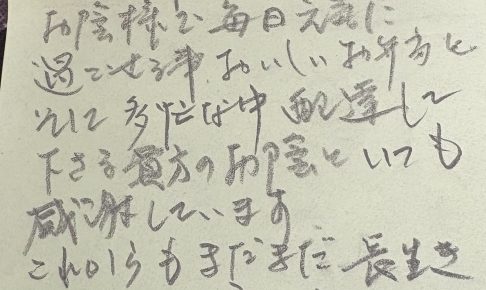 お陰様で毎日元気に
過ごせる事 おいしいお弁当と
そして多忙な中 配達して
下さる貴方のお陰と いつも
感謝しています
これからもまだまだ長生き